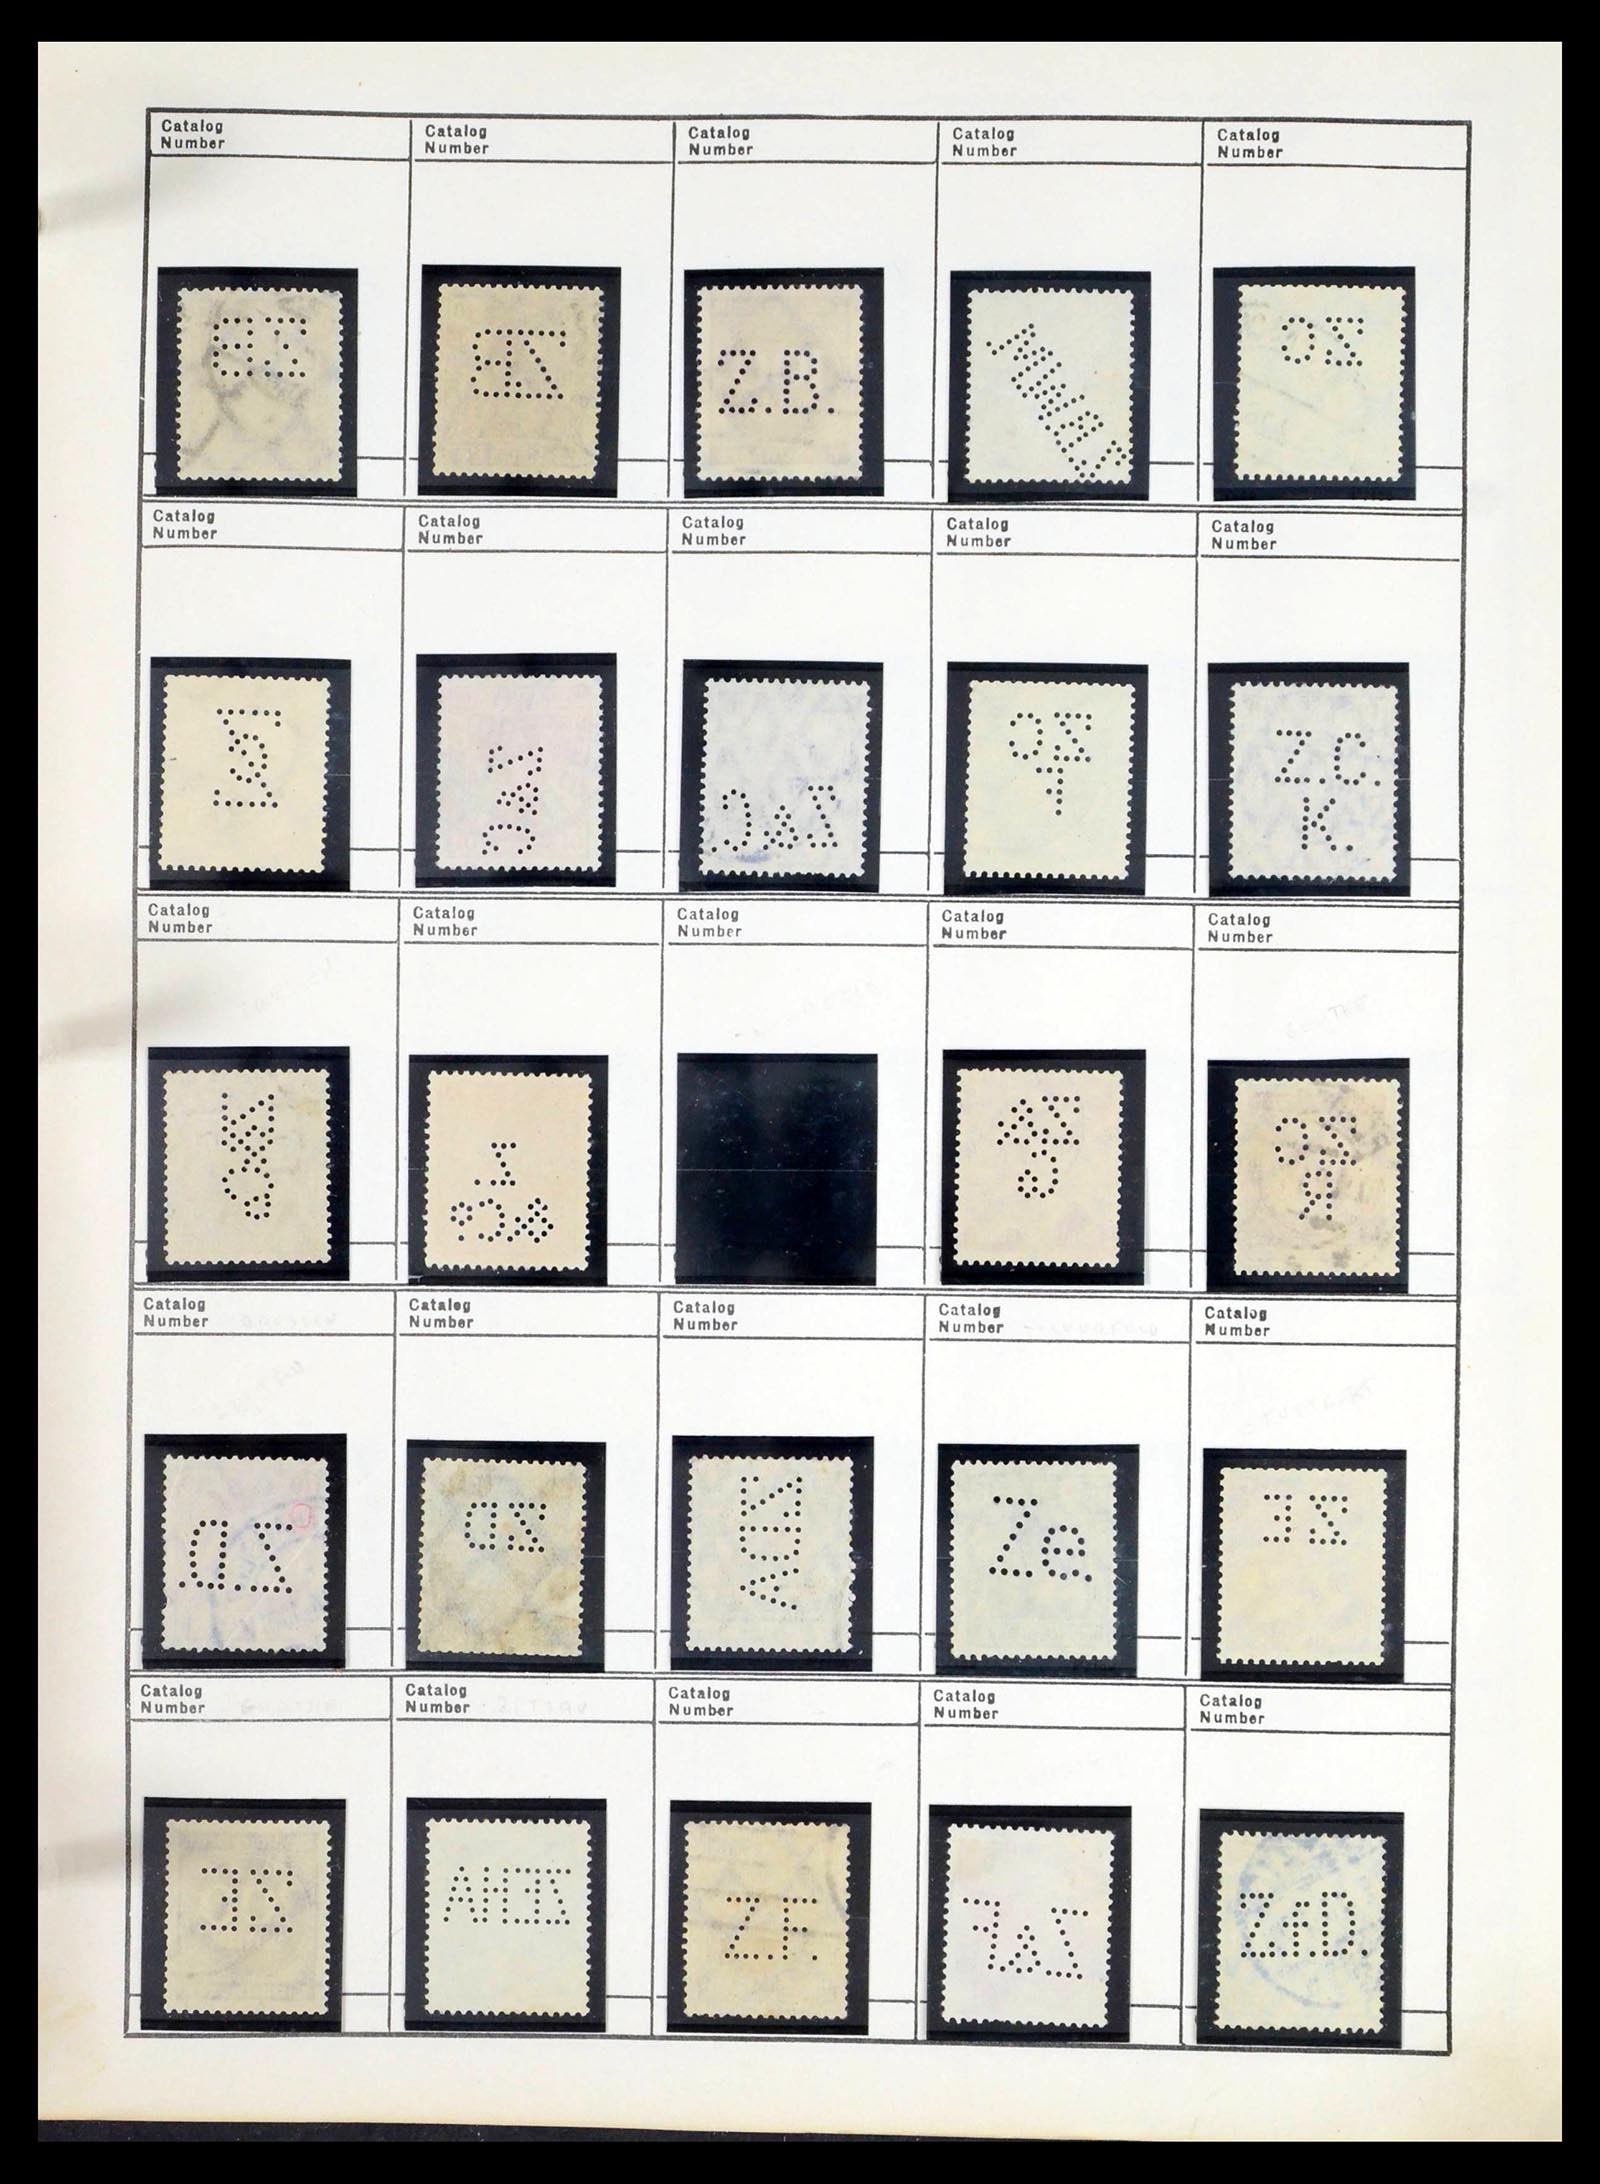 Catalog Number
Catalog Number
Catalog Number
Catalog Number
Catalog Number
ZB
ZB
Z.B.
ZC
Catalog Number
Catalog Number
Catalog Number
Catalog Number
Catalog Number
Z&C
Z&C
Z.C.
K.
Catalog Number
Catalog Number
Catalog Number
Catalog Number
Catalog Number
Z
&C°
ZC
R
Catalog Number
Catalog Number
Catalog Number
Catalog Number
Catalog Number
Z.D.
ZD
ZDA
Ze
ZE
Catalog Number
Catalog Number
Catalog Number
Catalog Number
Catalog Number
ZE
ZEHA
Z.F.
Z&F
Z.f.D.